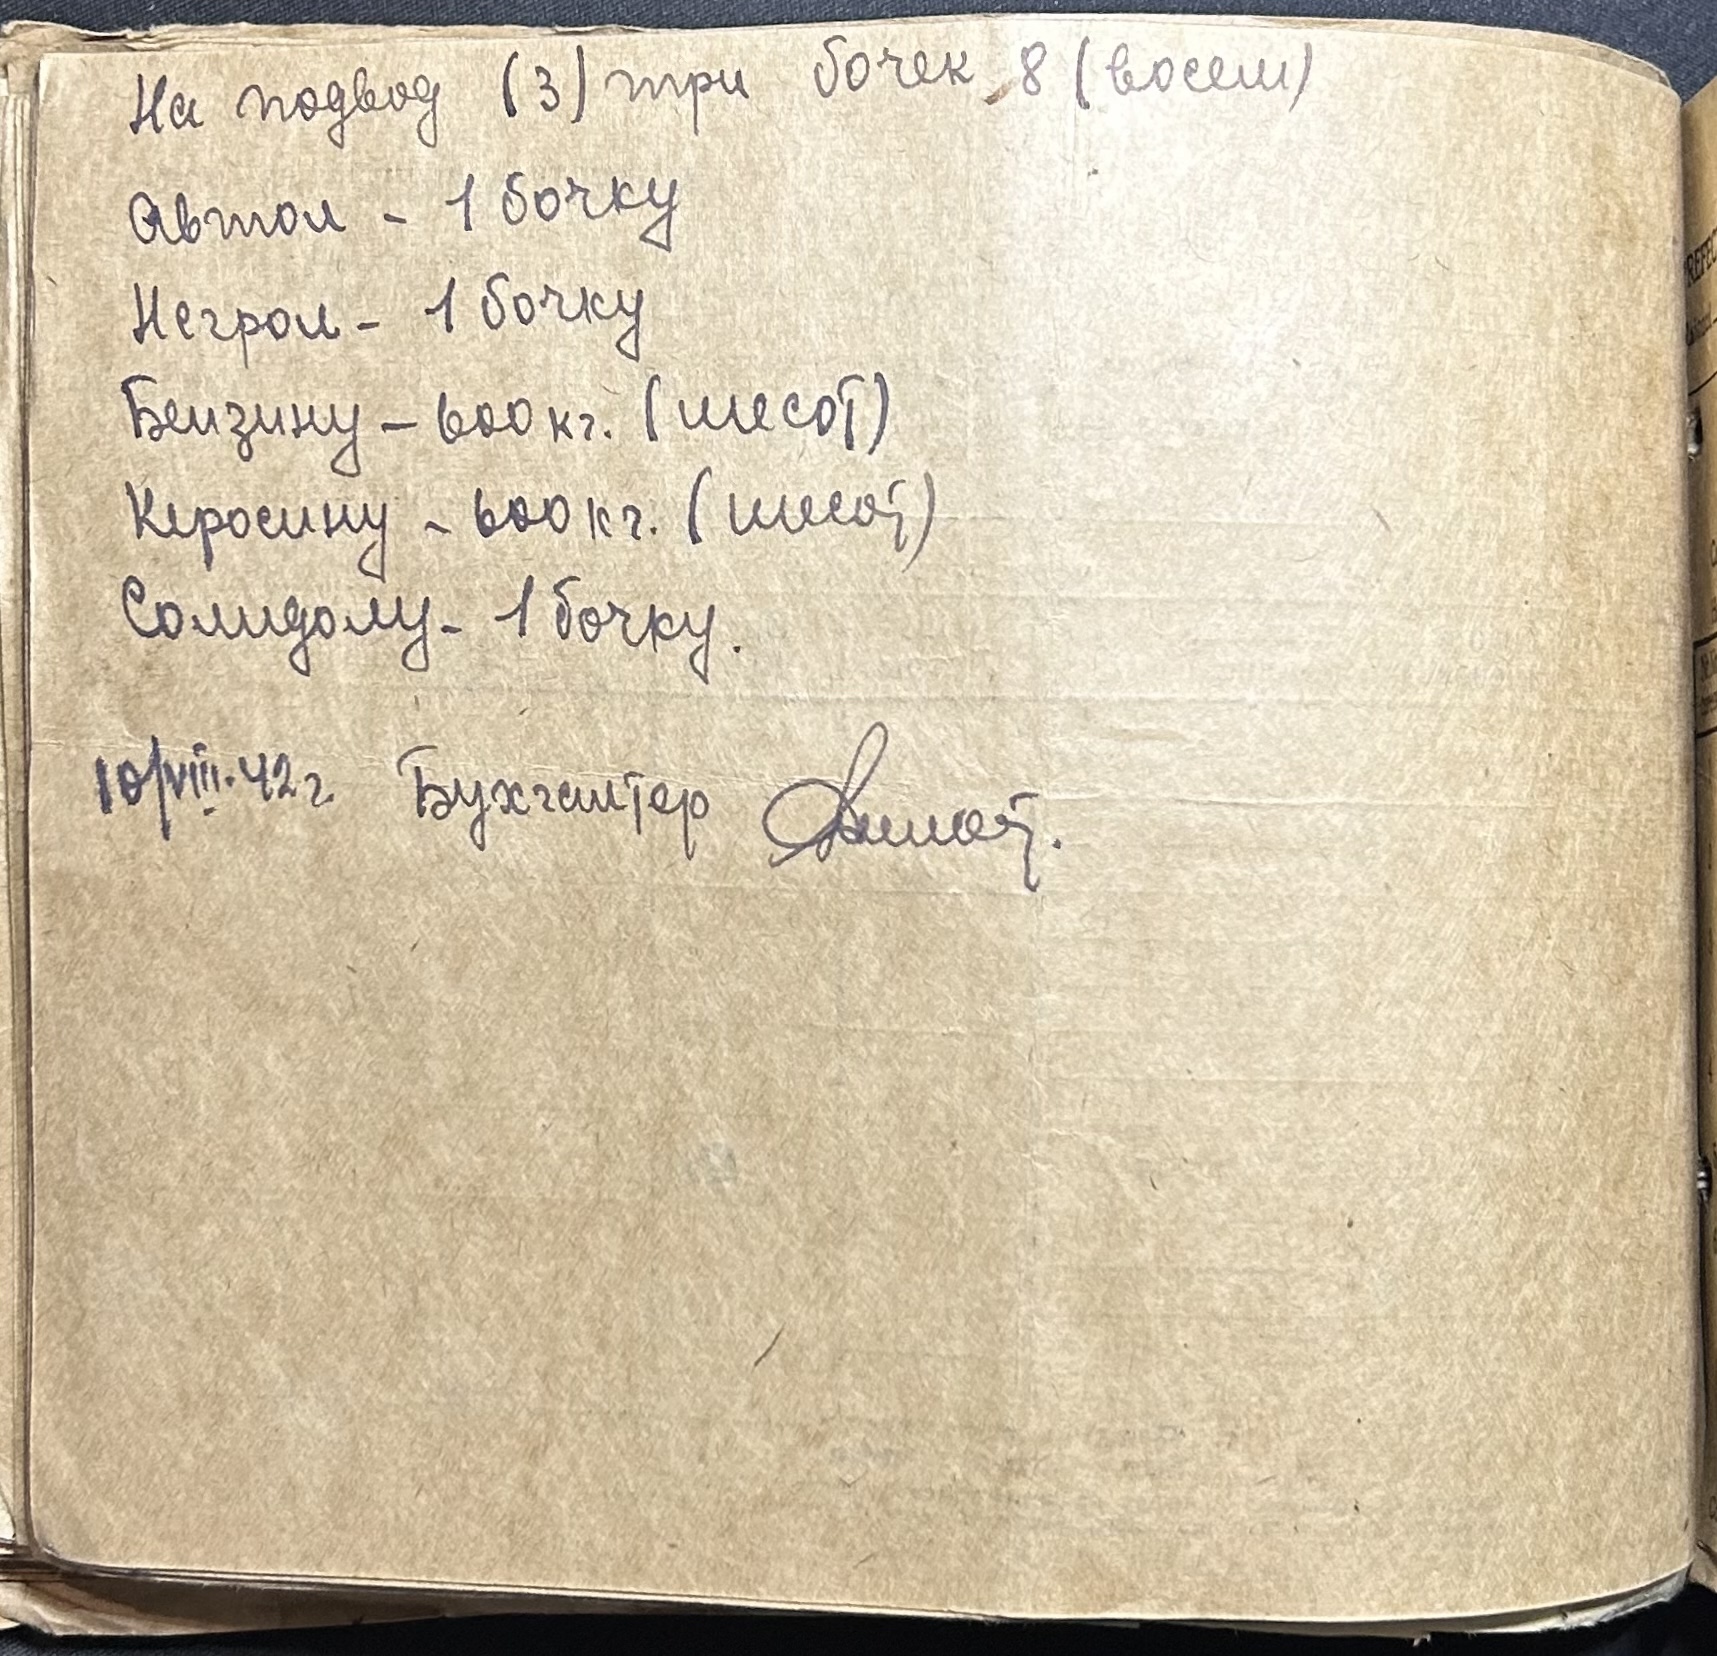 На подвод (3) три бочек 8 (восем)
Автол - 1 бочку
Негрол - 1 бочку
Бензину - 600 кг. (шесот)
Керосину - 600 кг. (шесот)
Солидолу - 1 бочку.
10/VIII.42 г. Бухгалтер